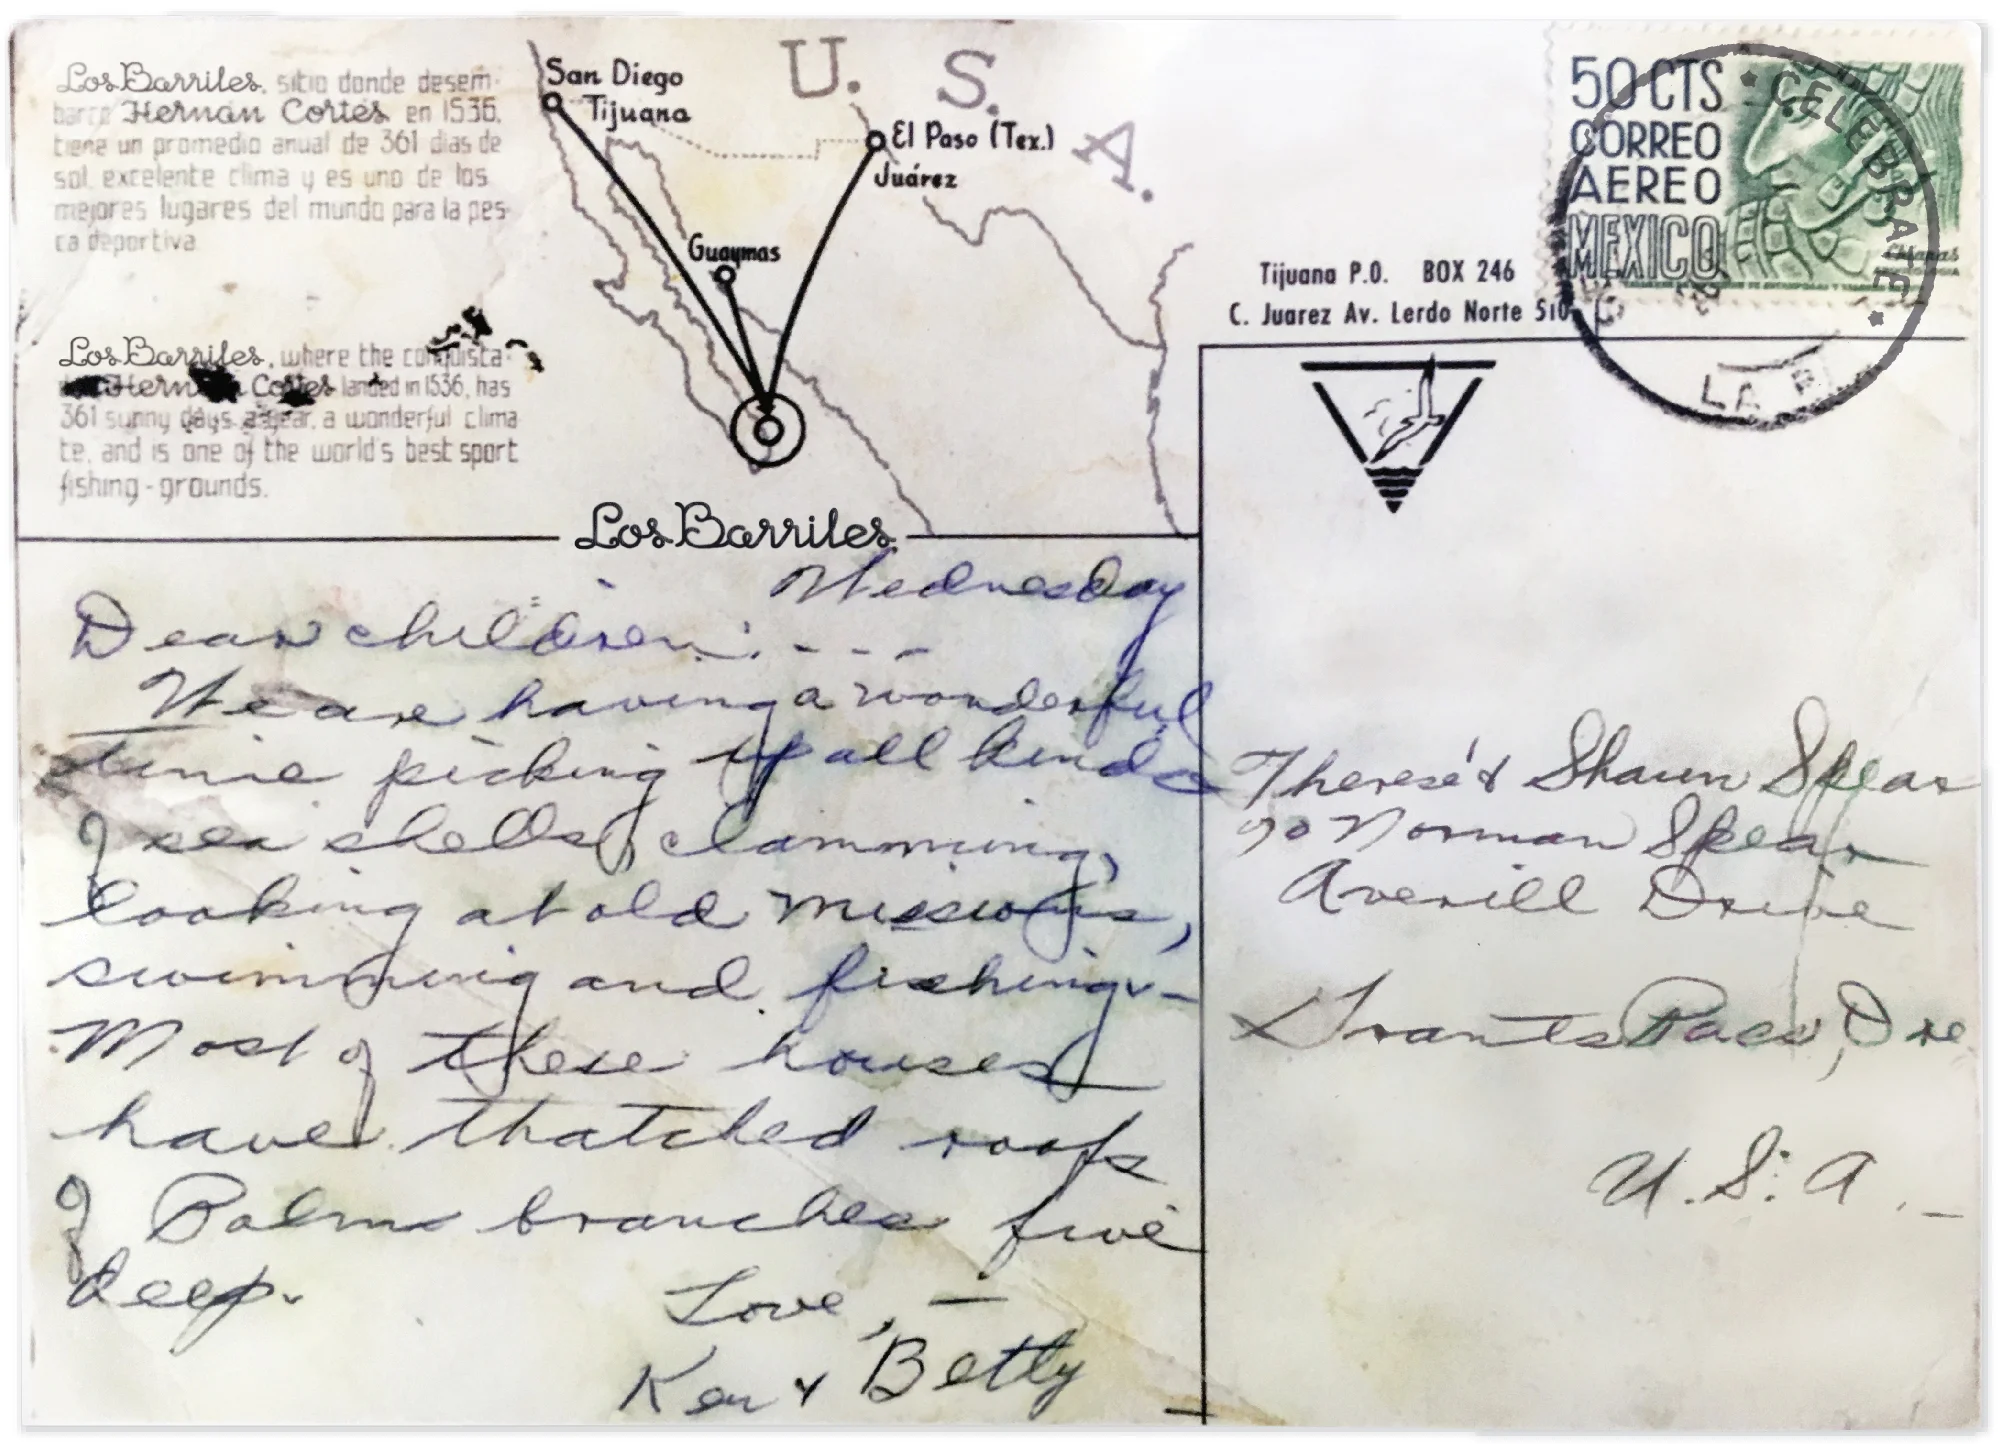 Los Barriles, sitio donde desem-
barco Hernán Cortés en 1536,
tiene un promedio anual de 361 dias de
sol, excelente clima y es uno de los
mejores lugares del mundo para la pes-
ca deportiva
Los Barriles, where the conquista-
Hernan Cortes landed in 1536, has
361 sunny days a year, a wonderful clima
te, and is one of the world's best sport
fishing-grounds.
U. S. A.
San Diego
Tijuana
El Paso (Tex.)
Juárez
Guaymas
Los Barriles
50 CTS
CORREO
AEREO
MEXICO
CELEBRATE
LA P
Tijuana P.O. BOX 246
C. Juarez Av. Lerdo Norte 510
Wednesday
Dear children:---
We are having a wonderful
time picking up all kinds
of sea shells, clamming,
looking at old missions,
swimming and fishing-
Most of these houses
have thatched roofs
of Palm branches five
deep.
Love, —
Ken & Betty
Therese & Shaun Spear
c/o Norman Spear
Averill Drive
Grants Pass, Ore
U.S.A.-